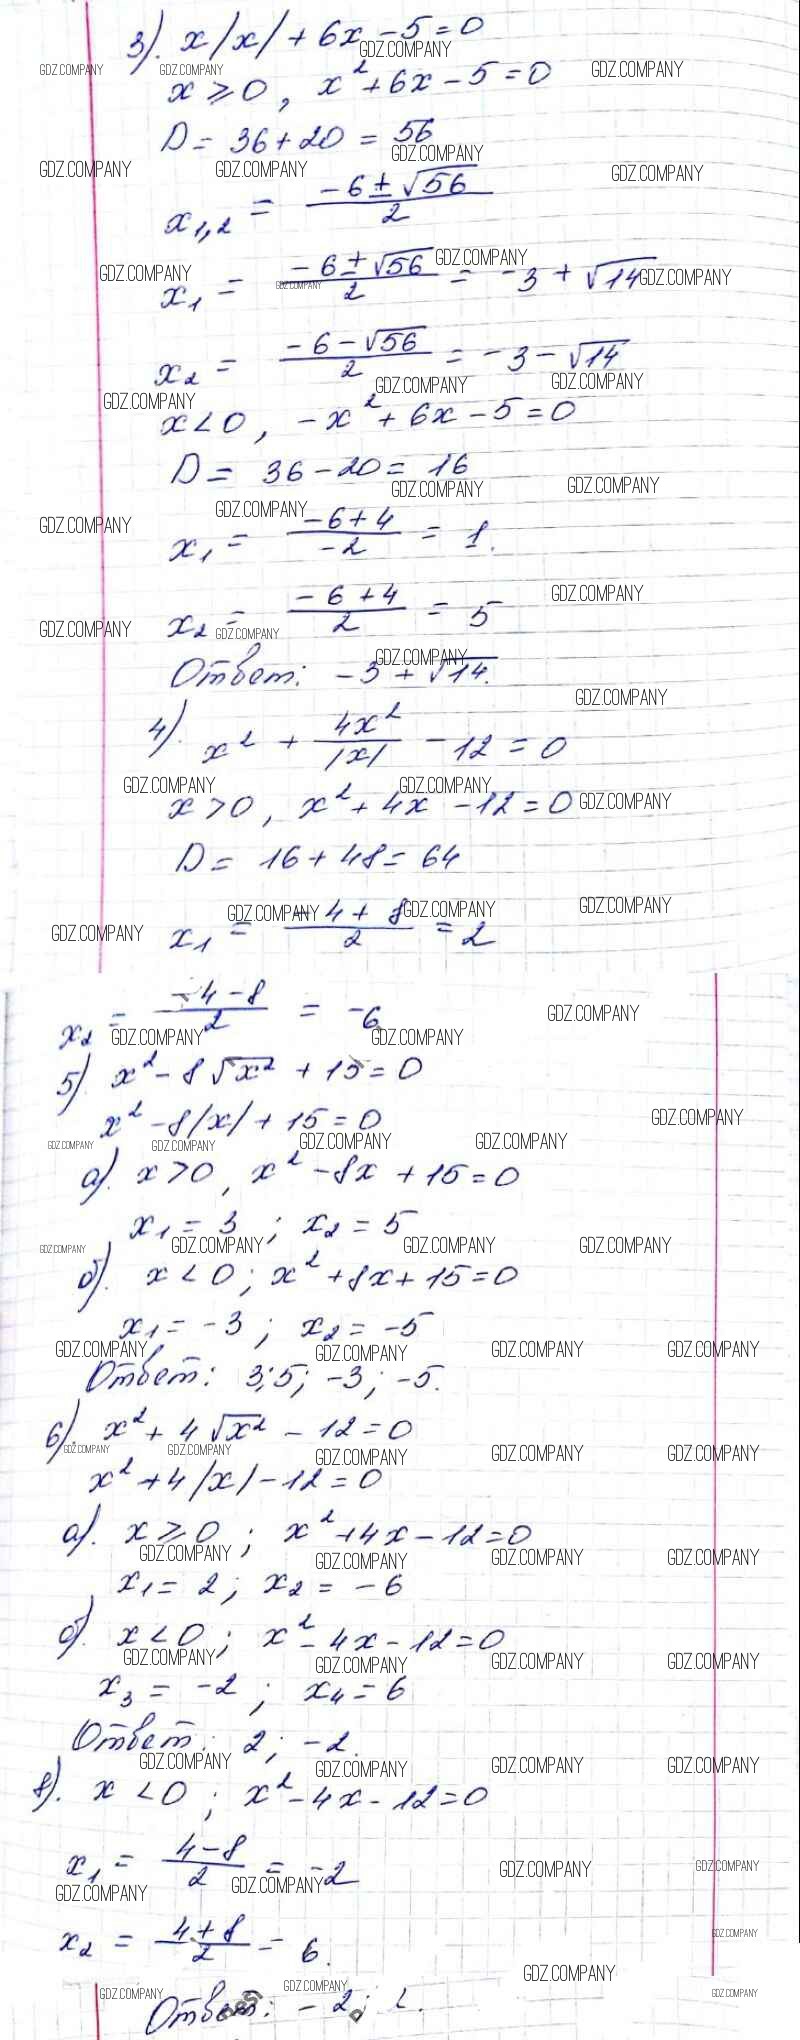 3). x/x/ + 6x - 5 = 0
x ⩾ 0, x² + 6x - 5 = 0
D = 36 + 20 = 56
x₁,₂ = (-6 ± √56)/2
x₁ = (-6 ± √56)/2 = -3 + √14
x₂ = (-6 - √56)/2 = -3 - √14
x < 0, -x² + 6x - 5 = 0
D = 36 - 20 = 16
x₁ = (-6+4)/(-2) = 1.
x₂ = (-6+4)/2 = 5
Ответ: -3 + √14.
4). x² + 4x²//x/ - 12 = 0
x > 0, x² + 4x - 12 = 0
D = 16 + 48 = 64
x₁ = (-4 + 8)/2 = 2
x₂ = (-4-8)/2 = -6
5). x² - 8√x² + 15 = 0
x² - 8/x/ + 15 = 0
а). x > 0, x² - 8x + 15 = 0
x₁ = 3; x₂ = 5
б). x < 0; x² + 8x + 15 = 0
x₁ = -3; x₂ = -5
Ответ: 3; 5; -3; -5.
6). x² + 4√x² - 12 = 0
x² + 4/x/ - 12 = 0
а). x ⩾ 0; x² + 4x - 12 = 0
x₁ = 2; x₂ = -6
б). x < 0; x² - 4x - 12 = 0
x₃ = -2; x₄ = 6
Ответ: 2; -2.
8). x < 0; x² - 4x - 12 = 0
x₁ = (4-8)/2 = -2
x₂ = (4+8)/2 = 6.
Ответ: -2;
GDZ.COMPANY